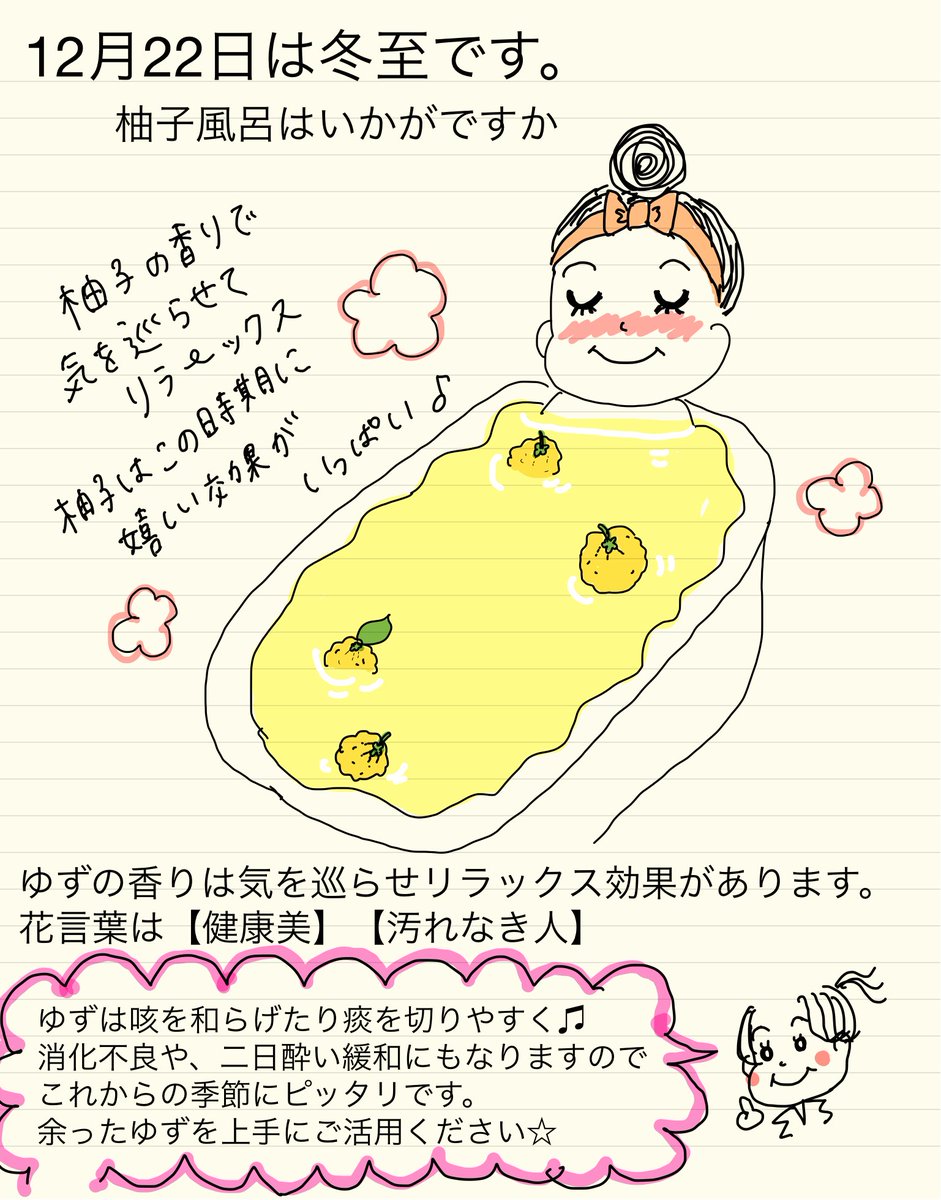 12月22日は冬至です。
柚子風呂はいかがですか
柚子の香りで
気を巡らせて
リラ〜ックス
柚子はこの時期に
嬉しい効果が
いっぱい♪
ゆずの香りは気を巡らせリラックス効果があります。
花言葉は【健康美】【汚れなき人】
ゆずは咳を和らげたり痰を切りやすく♫
消化不良や、二日酔い緩和にもなりますので
これからの季節にピッタリです。
余ったゆずを上手にご活用ください☆